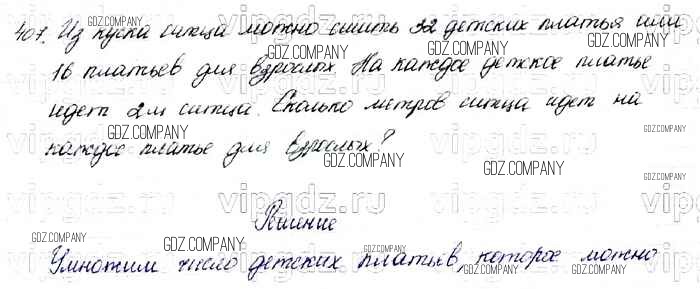 407. Из куска ситца можно сшить 32 детских платья или
16 платьев для взрослых. На каждое детское платье
идет 2 м ситца. Сколько метров ситца идет на
каждое платье для взрослых?
Решение
Умножим число детских платьев, которое можно
GDZ.COMPANY
vipgdz.ru